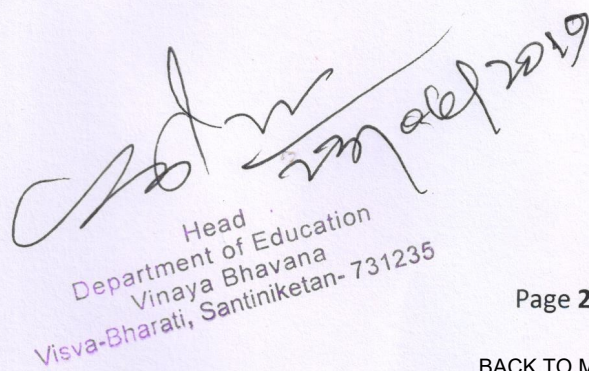 Head
Department of Education
Vinaya Bhavana
Visva-Bharati, Santiniketan- 731235
Page 2
BACK TO M